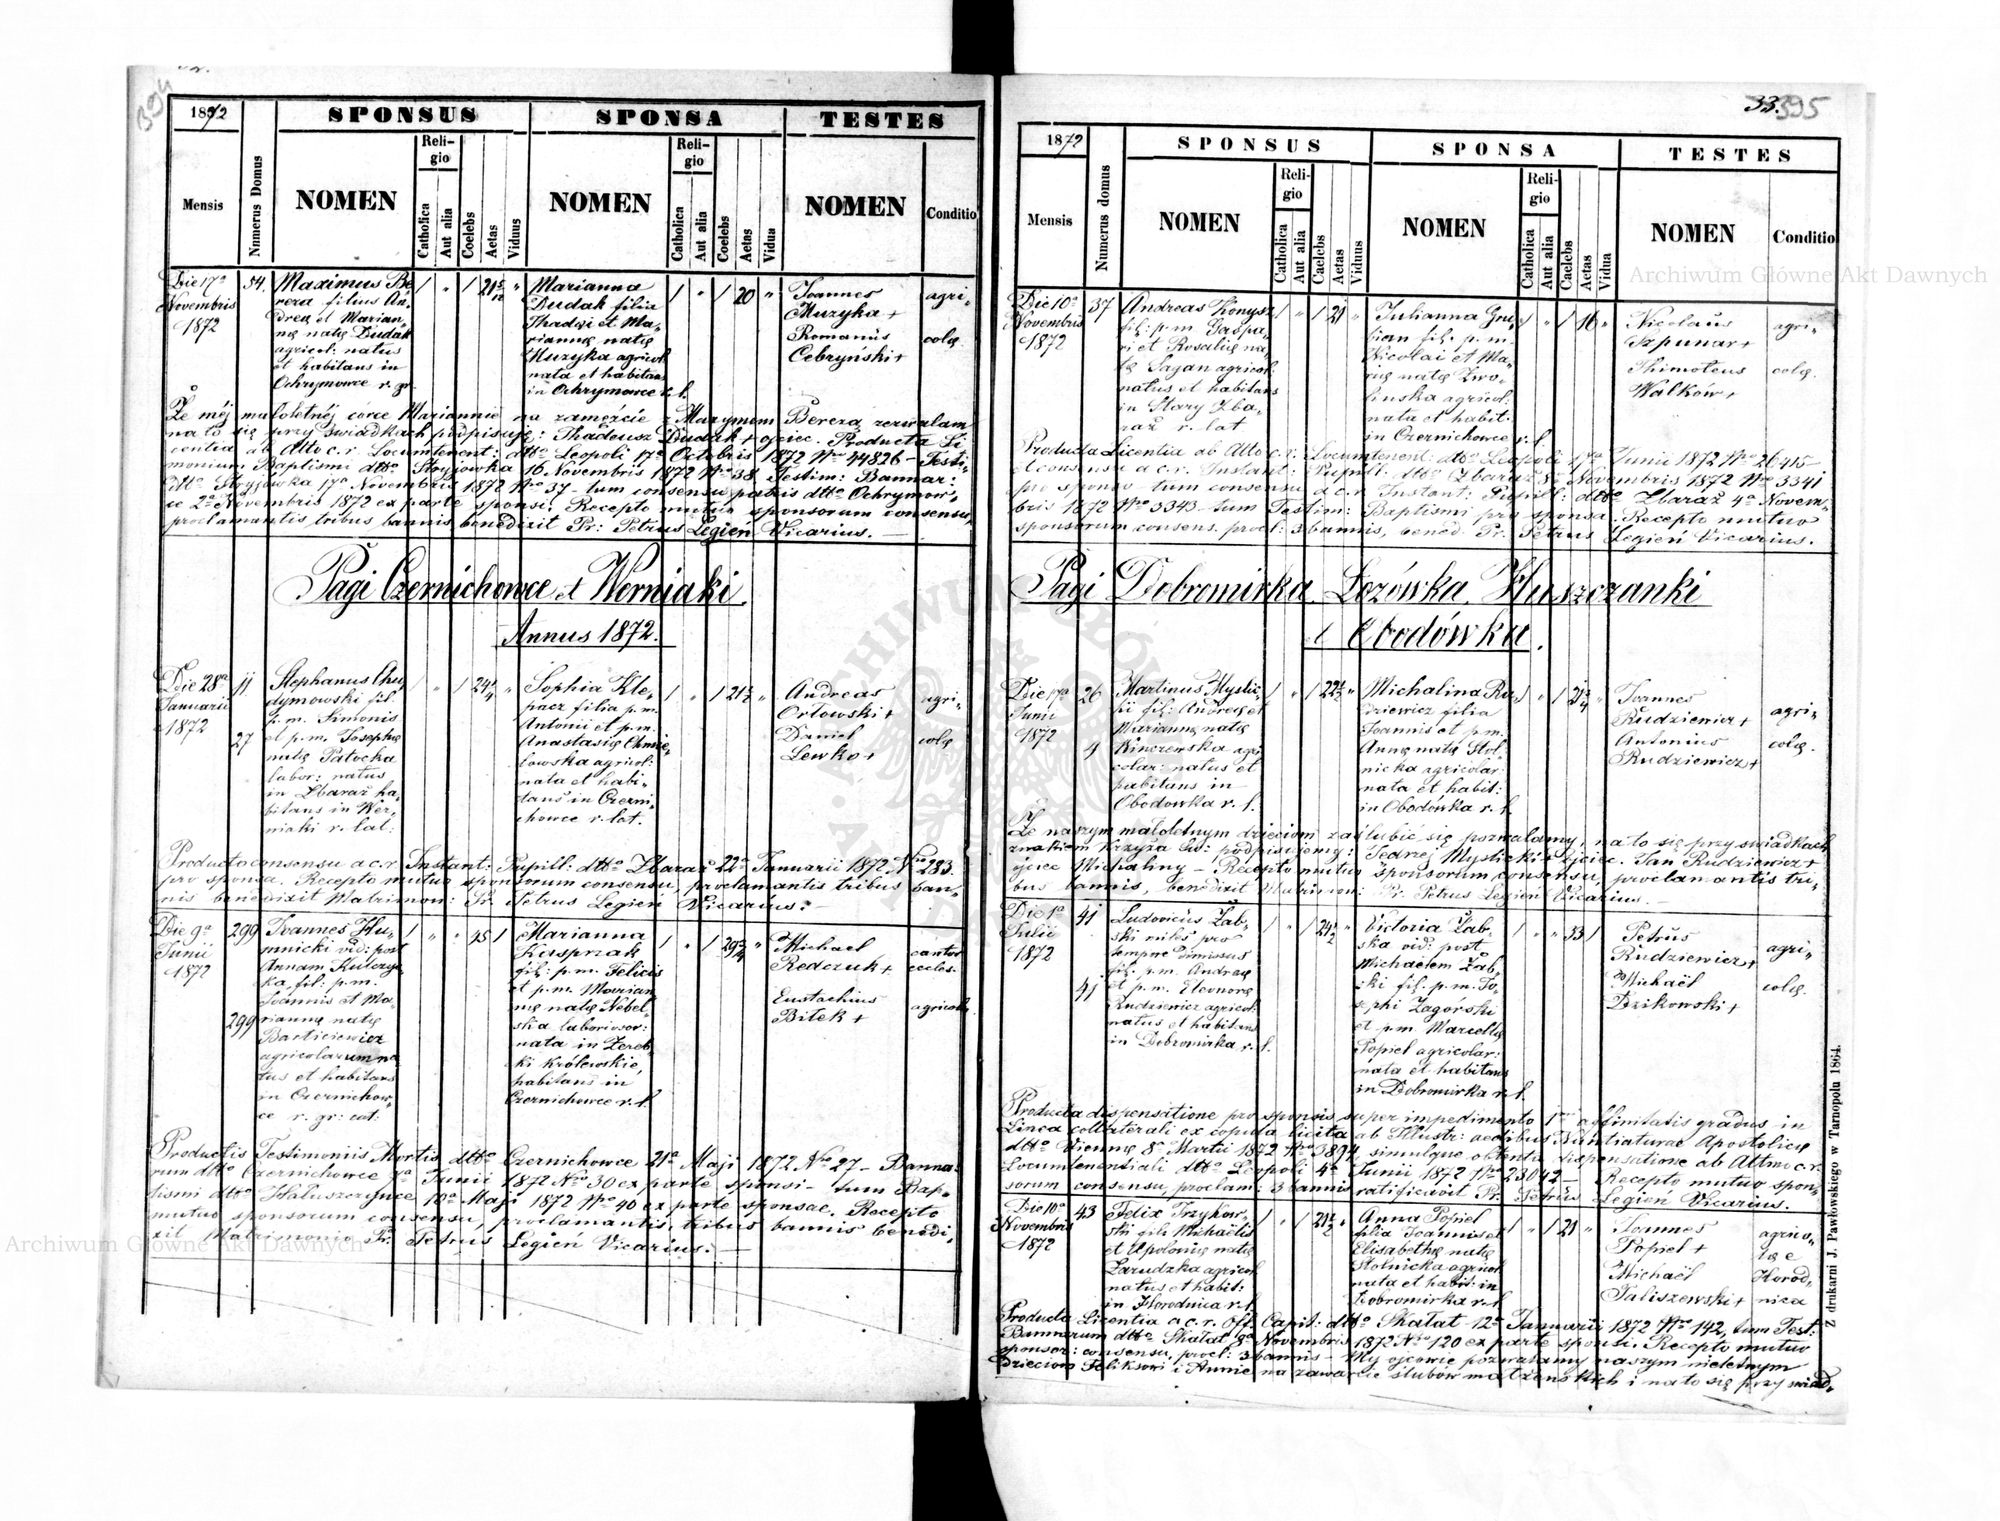 394
1872
SPONSUS
SPONSA
TESTES
Mensis
Numerus Domus
NOMEN
Religio
Catholica
Aut alia
Coelebs
Aetas
Viduus
NOMEN
Religio
Catholica
Aut alia
Coelebs
Aetas
Vidua
NOMEN
Conditio
Die 17a
Novembris
1872
54.
Maximus Be-
reza filius An-
dreą et Marian-
nę natę Dudak
agricol: natus
et habitans in
Ochrymowce r. gr.
/ " / 21 5/12 "
Marianna
Dudak filia
Thadęi et Ma-
riannę natę
Muzyka agricol
nata et habitans
in Ochrymowce r. l.
/ " / 20 "
Joannes
Muzyka +
Romanus
Cebryński +
agri-
colę.
Że méj małoletnéj córce Mariannie na zamęźcie z Maxymem Berezą zezwalam
na to się przy świadkach podpisuję: Thadeusz Dudak + ojciec. Producta Li-
centia ab Altto c. r. Locumtenent: dtto Leopoli 17a Octobris 1872 No 44826 – Testi-
monium Baptismi dtto Stryjówka 16 Novembris 1872 No 38, Testim: Bannar:
dtto Stryjówka 17a Novembris 1872 No 37 – tum consensu patris dtto Ochrymow-
ce 2a Novembris 1872 ex parte sponsi. Recepto mutuo sponsorum consensu,
proclamantis tribus bannis benedixit Pr: Petrus Legień Vicarius. —
Pagi Czernichowce et Werniaki
Annus 1872.
Die 28a
Januarii
1872
11
27
Stephanus Chu-
dymowski fil.
p. m. Simonis
et p. m. Josephę
natę Patocka
labor: natus
in Zbaraż ha-
bitans in Wer-
niaki r. lat:
/ " / 24 1/4 "
Sophia Kle-
pacz filia p. m.
Antonii et p. m.
Anastasię Chmie-
lowska agricol:
nata et habi-
tans in Czerni-
chowce r. lat.
/ " / 21 1/2 "
Andreas
Orłowski +
Daniel
Lewko +
agri-
colę
Producto consensu a c. r. Instant: Pupill: dtto Zbaraż 22a Januarii 1872 No 283.
pro sponsa. Recepto mutuo sponsorum consensu, proclamantis tribus ban-
nis benedixit Matrimon: Pr. Petrus Legień Vicarius. —
Die 9a
Junii
1872
299
299
Joannes Hu-
mnicki vid: post
Annam Kulczyc-
ka, fil: p. m.
Joannis et Ma-
riannę natę
Bartkiewicz
agricolarum na-
tus et habitans
in Czernichow-
ce r. gr: cat.
/ " " 45 /
Marianna
Kasprzak
fil: p. m. Felicis
et p. m. Marian-
nę natę Nebel-
ska laborisor:
nata in Zereb-
ki Królewskie,
habitans in
Czernichowce r. l.
/ " / 29 3/4 "
Michael
Redczuk +
Eustachius
Bilek +
cantor
eccles.
agricol.
Productis Testimoniis Mortis dtto Czernichowce 21a Maji 1872 No 27 – Banna-
rum dtto Czernichowce 7a Junii 1872 No 30 ex parte sponsi – tum Bap-
tismi dtto Hałuszczyńce 18a Maji 1872 No 40 ex parte sponsae. Recepto
mutuo sponsorum consensu, proclamantis tribus bannis benedi-
xit Matrimonio Pr. Petrus Legień Vicarius. —
33. 395
1872
SPONSUS
SPONSA
TESTES
Mensis
Numerus domus
NOMEN
Religio
Catholica
Aut alia
Caelebs
Aetas
Viduus
NOMEN
Religio
Catholica
Aut alia
Caelebs
Aetas
Vidua
NOMEN
Conditio
Die 10a
Novembris
1872
37
Andreas Konysz
fil: p. m. Gaspa-
ri et Rosalię na-
tę Sajan agricol.
natus et habitans
in Stary Zba-
raż r. lat
/ " / 21 "
Julianna Gru-
bian fil. p. m.
Nicolai et Ma-
rię natę Zwo-
linska agricol:
nata et habit:
in Czernichowce r. l.
/ " / 16 "
Nicolaus
Szpunar +
Thimoteus
Walków +
agri-
colę.
Producta Licentia ab Altto c. r. Locumtenent: dtto Leopoli 17a Junii 1872 No 26415 –
et consensu a c. r. Instant: Pupill: dtto Zbaraż 8a Novembris 1872 No 3341
pro sponso – tum consensu a c. r. Instant: Pupill: dtto Zbaraż 4a Novem-
bris 1872 No 3343 – tum Testim: Baptismi pro sponsa. Recepto mutuo
sponsorum consens. procl: 3 bannis, bened. Pr. Petrus Legień Vicarius.
Pagi Dobromirka, Lozówka, Hłuszczanki
i Obodówka.
Die 17a
Junii
1872
26
4
Martinus Mystic-
ki fil: Andreę et
Mariannę natę
Winczewska agri-
colar: natus et
habitans in
Obodówka r. l.
/ " / 22 1/2 "
Michalina Ru-
dziewicz filia
Joannis et p. m.
Annę natę Stol-
nicka agricolar:
nata et habit:
in Obodówka r. l.
/ " / 21 3/4 "
Joannes
Rudziewicz +
Antonius
Rudziewicz +
agri-
colę.
Że naszym małoletnym dzieciom zaślubić się pozwalamy, na to się przy świadkach
znakiem Krzyża Św: podpisujemy: Jędrzej Mysticki + ojciec. Jan Rudziewicz +
ojciec Michaliny – Recepto mutuo sponsorum consensu, proclamantis tri-
bus bannis, benedixit Matrimon: Pr. Petrus Legień Vicarius. —
Die 1a
Julii
1872
41
41
Ludovicus Żab-
ski miles pro
semper dimissus
fil. p. m. Andreę
et p. m. Eleonorę
Rudziewicz agricol:
natus et habitans
in Dobromirka r. l.
/ " / 24 1/2 "
Victoria Żab-
ska vid: post
Michaelem Żab-
ski fil. p. m. Jo-
sephi Zagórski
et p. m. Marcellę
Popiel agricolar:
nata et habitans
in Dobromirka r. l.
/ " " 33 /
Petrus
Rudziewicz +
Michaël
Dzikowski +
agri-
colę.
Producta dispensatione pro sponsis super impedimento 1mi affinitatis gradus in
Linea collaterali ex copula licita ab Illustr: aedibus Nuntiaturae Apostolicę
dtto Viennę 8a Martii 1872 No 3894, simulque obtenta dispensatione ab Alttmo c. r.
Locumtenentiali dtto Leopoli 4a Junii 1872 No 23042 – Recepto mutuo spon-
sorum consensu, proclam: 3 bannis ratificavit Pr. Petrus Legień Vicarius.
Die 10a
Novembris
1872
43
Felix Trzykow-
ski fil: Michaëlis
et Apolonię natę
Zarudzka agricol
natus et habit:
in Horodnica r. l.
/ " / 21 1/2 "
Anna Popiel
filia Joannis et
Elisabethę natę
Stolnicka agricol
nata et habit: in
Dobromirka r. l.
/ " / 21 "
Joannes
Popiel +
Michaël
Taliszewski +
agrico-
lę e
Horod-
nica
Producta Licentia a c. r. Off. Capit: dtto Skałat 12a Januarii 1872 No 142, tum Test:
Bannarum dtto Skałat 9a Novembris 1872 No 120 ex parte sponsi. Recepto mutuo
sponsor: consensu, procl: 3 bannis – My ojcowie pozwalamy naszym nieletnym
dzieciom Feliksowi i Annie na zawarcie ślubów małżeńskich i na to się przy świad-
Z drukarni J. Pawłowskiego w Tarnopolu 1864.
Archiwum Główne Akt Dawnych
Archiwum Główne Akt Dawnych